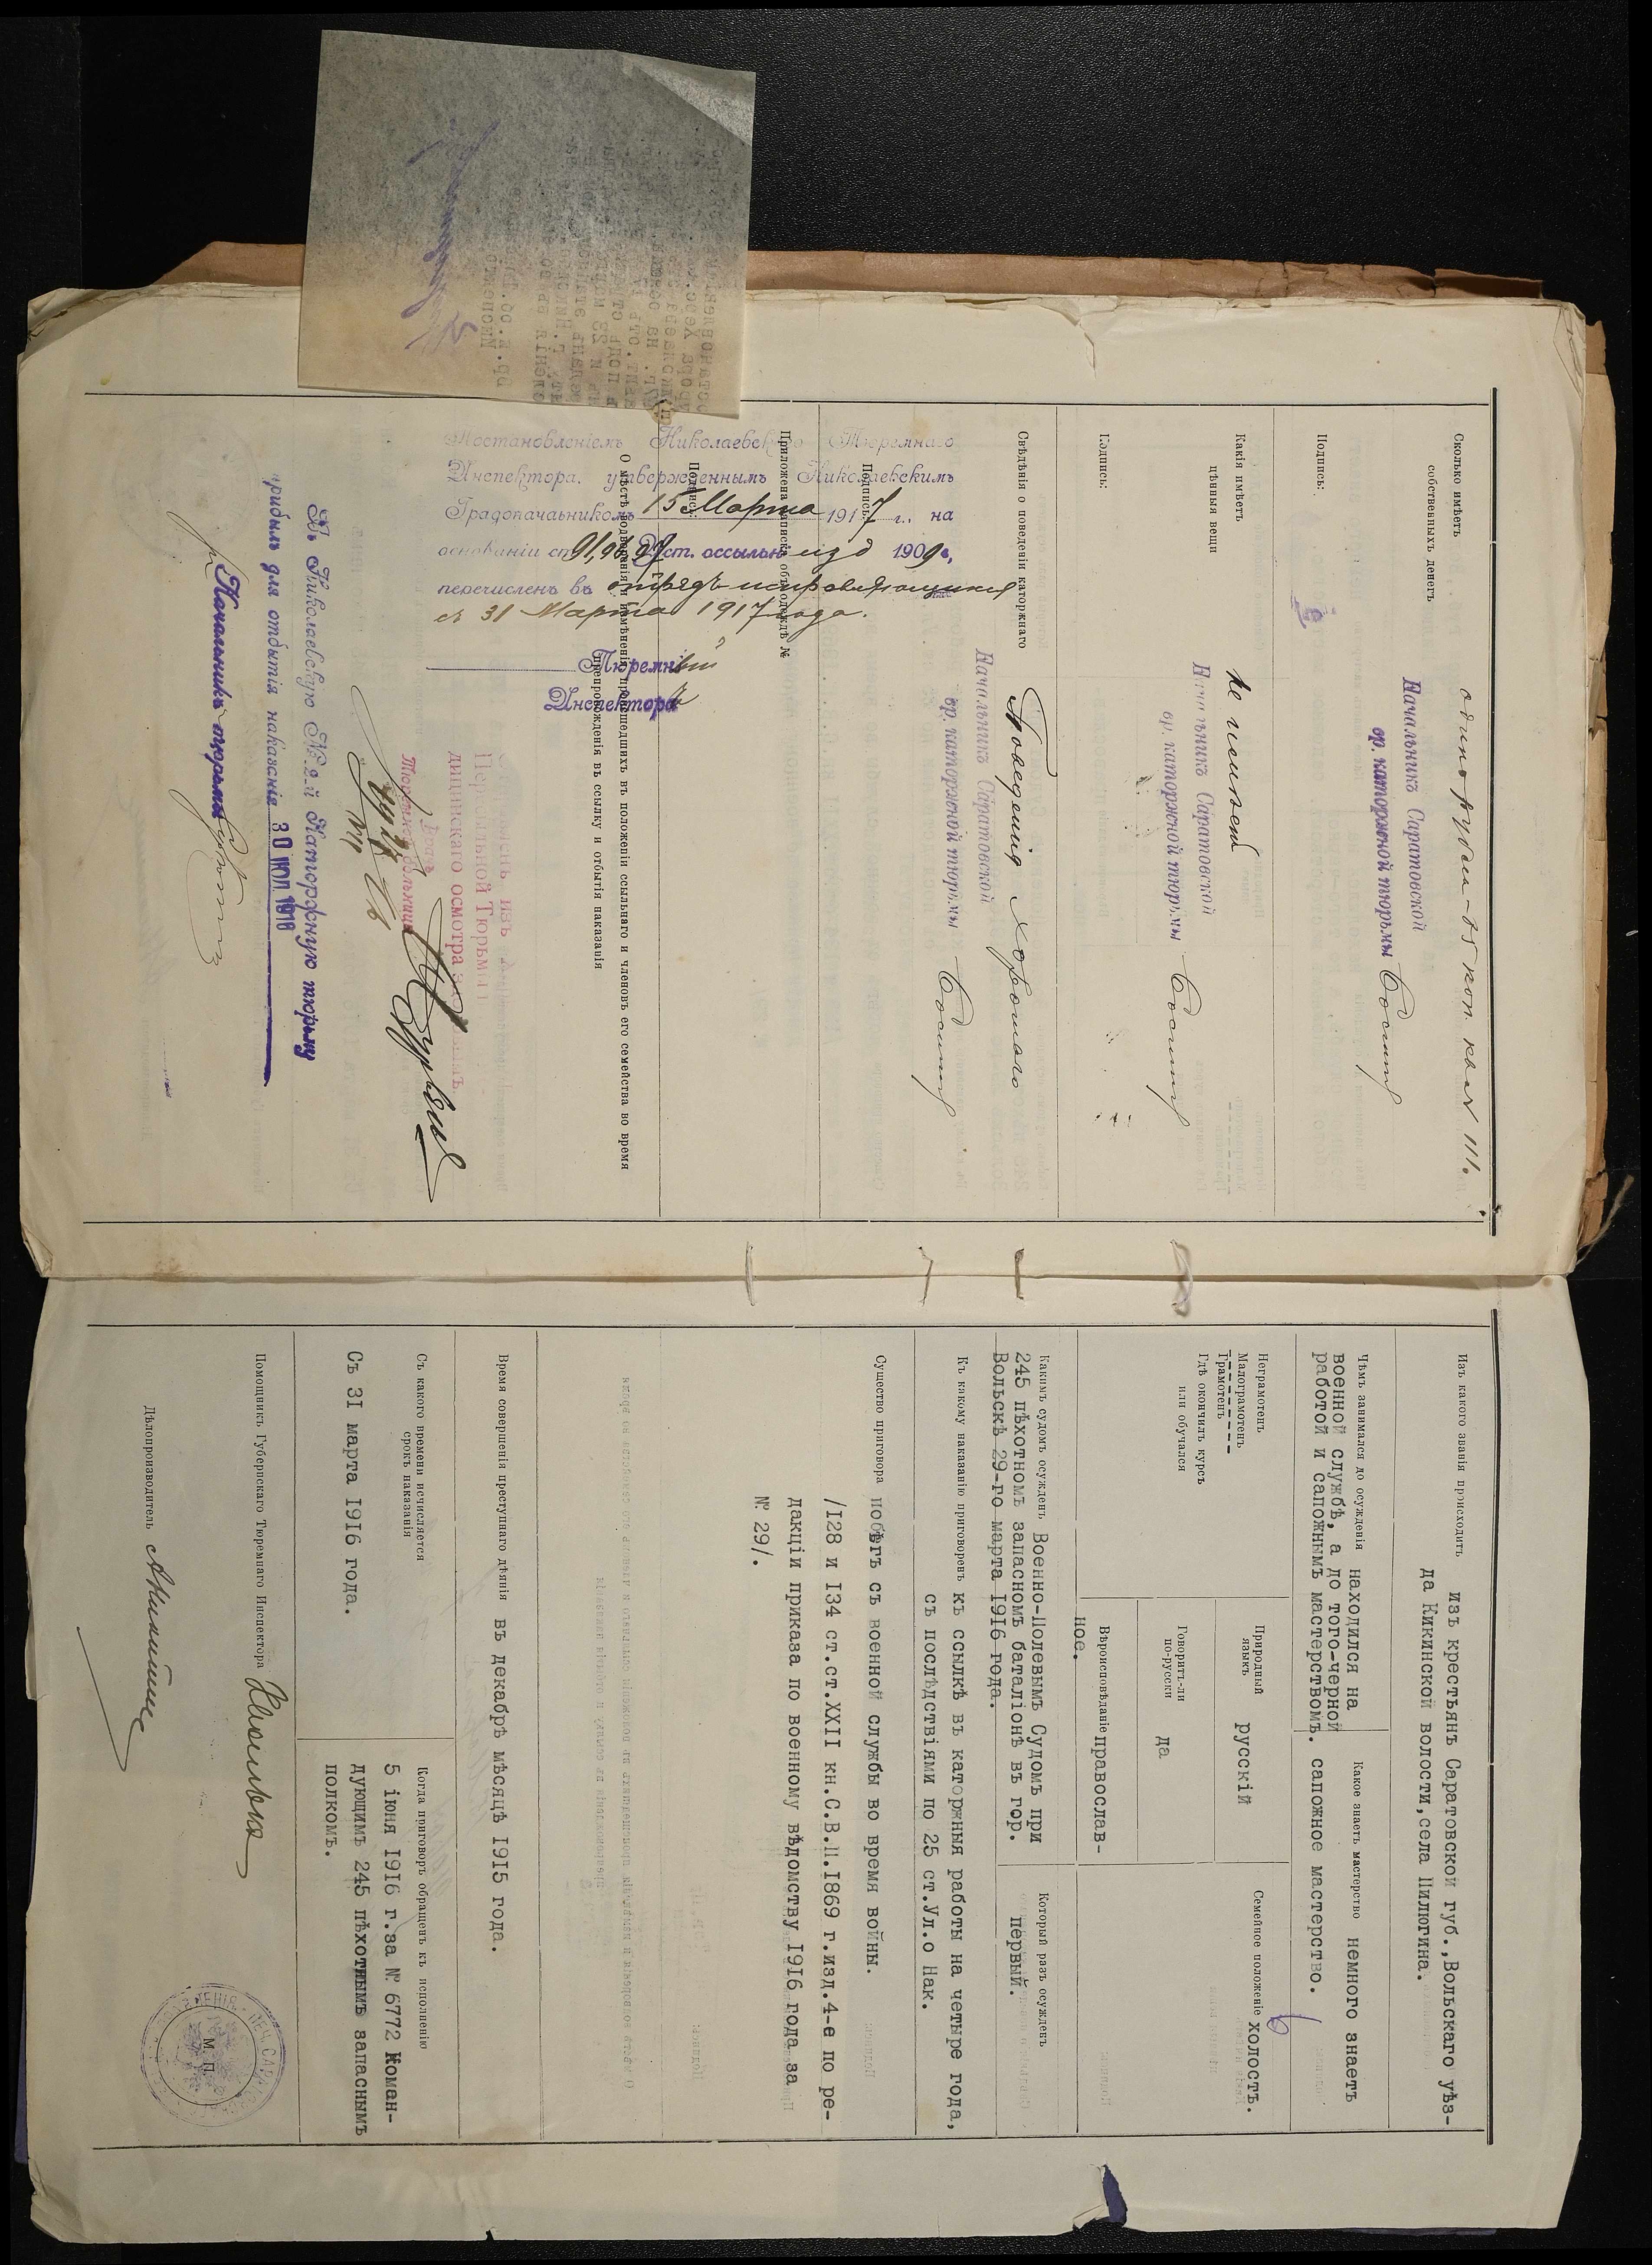 Сколько имѣетъ
собственныхъ денегъ
одинъ рубль - 85 коп. кв. № 111.
Начальникъ Саратовской
вр. каторжной тюрьмы
Подпись:
Какія имѣетъ
цѣнныя вещи
не имѣетъ
Начальникъ Саратовской
вр. каторжной тюрьмы
Подпись:
Свѣдѣнія о поведеніи каторжнаго
Поведенія хорошаго
Начальникъ Саратовской
вр. каторжной тюрьмы
Подпись:
Приложена записка объ одеждѣ №
Подпись:
О мѣстѣ водворенія и измѣненія происшедшихъ въ положеніи ссыльнаго и членовъ его семейства во время
препровожденія въ ссылку и отбытія наказанія
Постановленіемъ Николаевскаго Тюремнаго
Инспектора, утвержденнымъ Николаевскимъ
Градоначальникомъ 15 Марта 1917 г., на
основаніи ст. 91, 96, 97 Уст. о ссыльн. изд 1909 г.
перечисленъ въ отрядъ исправляющихся
съ 31 Марта 1917 года.
Тюремный
Инспекторъ
Пересыльной Тюрьмы
дицинскаго осмотра
Врачъ
Тюремной больницы
Въ Николаевскую № 2-й Каторжную тюрьму
прибылъ для отбытія наказанія 30 ІЮЛ 1916
Начальникъ тюрьмы
Изъ какого званія происходитъ
изъ крестьянъ Саратовской губ., Вольскаго уѣз-
да Кикинской волости, села Пилюгина.
Чѣмъ занимался до осужденія находился на
военной службѣ, а до того-черной
работой и сапожнымъ мастерствомъ.
Какое знаетъ мастерство немного знаетъ
сапожное мастерство.
Неграмотенъ
Малограмотенъ
Грамотенъ
Гдѣ окончилъ курсъ
или обучался
Природный
языкъ русскій
Говоритъ-ли
по-русски да
Вѣроисповѣданіе православ-
ное.
Семейное положеніе холостъ.
Какимъ судомъ осужденъ Военно-Полевымъ Судомъ при
245 пѣхотномъ запасномъ баталіонѣ въ гор.
Вольскѣ 29-го марта 1916 года.
Который разъ осужденъ
первый.
Къ какому наказанію приговоренъ къ ссылкѣ въ каторжныя работы на четыре года,
съ послѣдствіями по 25 ст. Ул. о Нак.
Существо приговора побѣгъ съ военной службы во время войны.
/128 и 134 ст.ст. XXII кн. С.В.П. 1869 г. изд. 4-е по ре-
дакціи приказа по военному вѣдомству 1916 года за
№ 29/.
Время совершенія преступнаго дѣянія въ декабрѣ мѣсяцѣ 1915 года.
Съ какого времени исчисляется
срокъ наказанія
Съ 31 марта 1916 года.
Когда приговоръ обращенъ къ исполненію
5 іюня 1916 г. за № 6772 Коман-
дующимъ 245 пѣхотнымъ запаснымъ
полкомъ.
Помощникъ Губернскаго Тюремнаго Инспектора
Дѣлопроизводитель
М. П.